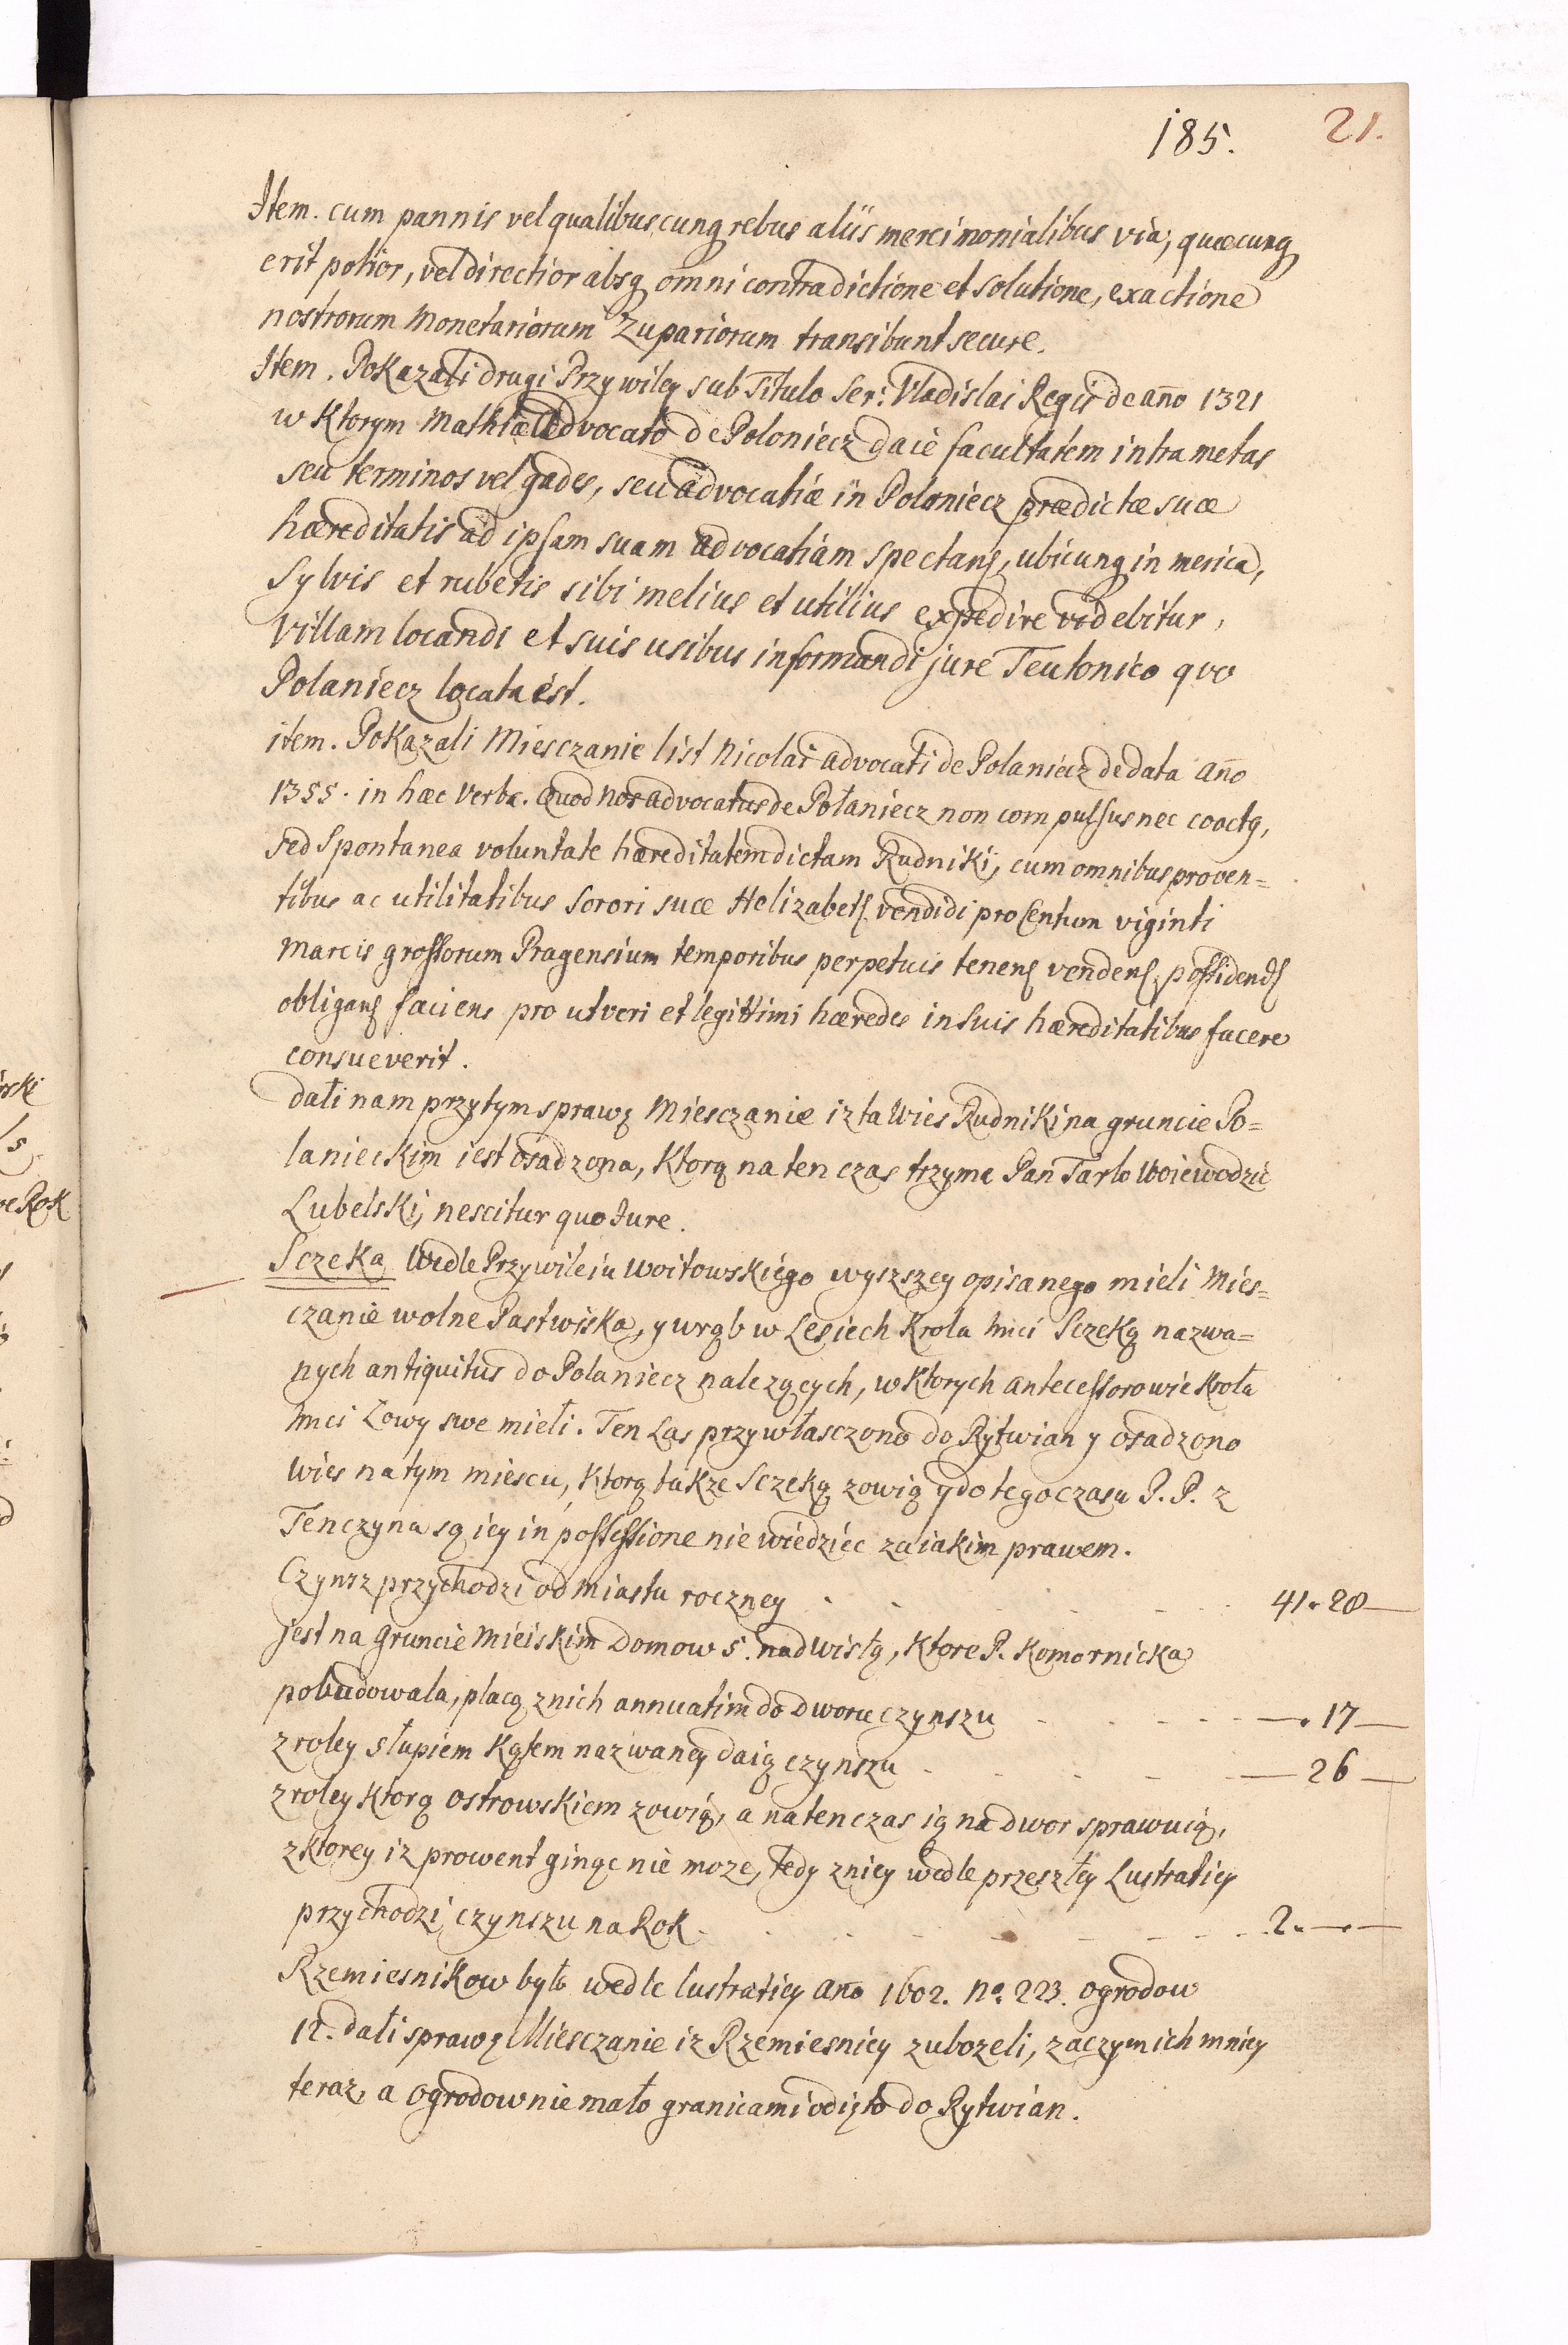 185. 21.
Item. cum pannis vel qualibuscunq rebus aliis mercimonialibus via, quæcunq
erit potior, vel directior absq omni contradictione et solutione, exactione
nostrorum Monetariorum Zupariorum transibunt secure.
Item. Pokazali drugi Przywiley sub Titulo Ser: Vladislai Regis de año 1321
w Ktorym Mathiæ Advocato de Poloniecz daie facultatem intra metas
seu terminos vel gades, seu advocatiæ in Poloniecz prædictæ suæ
hæreditatis ad ipsam suam advocatiam spectans, ubicunq in merica,
Sylvis et rubetis sibi melius et utilius expedire videbitur,
Villam locandi et suis usibus informandi jure Teutonico quo
Polaniecz locata est.
item. Pokazali Miesczanie list Nicolai advocati de Polaniecz de data año
1355. in hæc verba. Quod nos advocatus de Połaniecz non compulsus nec coactq,
sed Spontanea voluntate hæreditatem dictam Rudniki, cum omnibus proven=
tibus ac utilitatibus Sorori suæ Helizabeth vendidi pro Centum viginti
marcis grossorum Pragensium temporibus perpetuis tenens vendens, possidend
obligans faciens pro ut veri et legittimi hæredes in suis hæreditatibus facere
consueverit.
dali nam przytym sprawę Miesczanie iz ta Wies Rudniki na gruncie Po=
lanieckim iest osadzona, Ktorą na ten czas trzyma Pan Tarlo Woiewodzic
Lubelski, nescitur quo Iure.
Sczeka Wedle Przywileiu Woitowskiego wyszszey opisanego mieli Mies=
czanie wolne Pastwiska, y wrąb w Lesiech Krola Imci Sczeką nazwa=
nych antiquitus do Polaniecz nalezących, w Ktorych antecessorowie Krola
Imci Łowy swe mieli. Ten Las przywłasczono do Rytwian y osadzono
Wies na tym miescu, Ktorą takze Sczeką zowią y do tego czasu P. P. z
Tenczyna są iey in possessione nie wiedziec za iakim prawem.
Czynsz przychodzi od Miasta roczney . . . 41. 20 —
Jest na gruncie Mieiskim Domow 5. nad Wisłą, Ktore P. Komornicka
pobudowala, placą z nich annuatim do Dworu czynszu . . . —. 17 —
z roley słupiem Kątem nazwaney daią czynszu . . . — 26 —
z roley Ktorą Ostrowskiem zowią, a na ten czas ią na dwor sprawuią,
z ktorey iz prowent ginąc nie moze, tedy z niey wedle przeszłey Lustratiey
przychodzi czynszu na Rok . . . 2. — —
Rzemiesnikow było wedle lustratiey año 1602. No. 223. ogrodow
12. dali sprawę Miesczanie iz Rzemiesnicy zubozeli, zaczym ich mniey
teraz, a ogrodow nie mało granicami odięto do Rytwian.